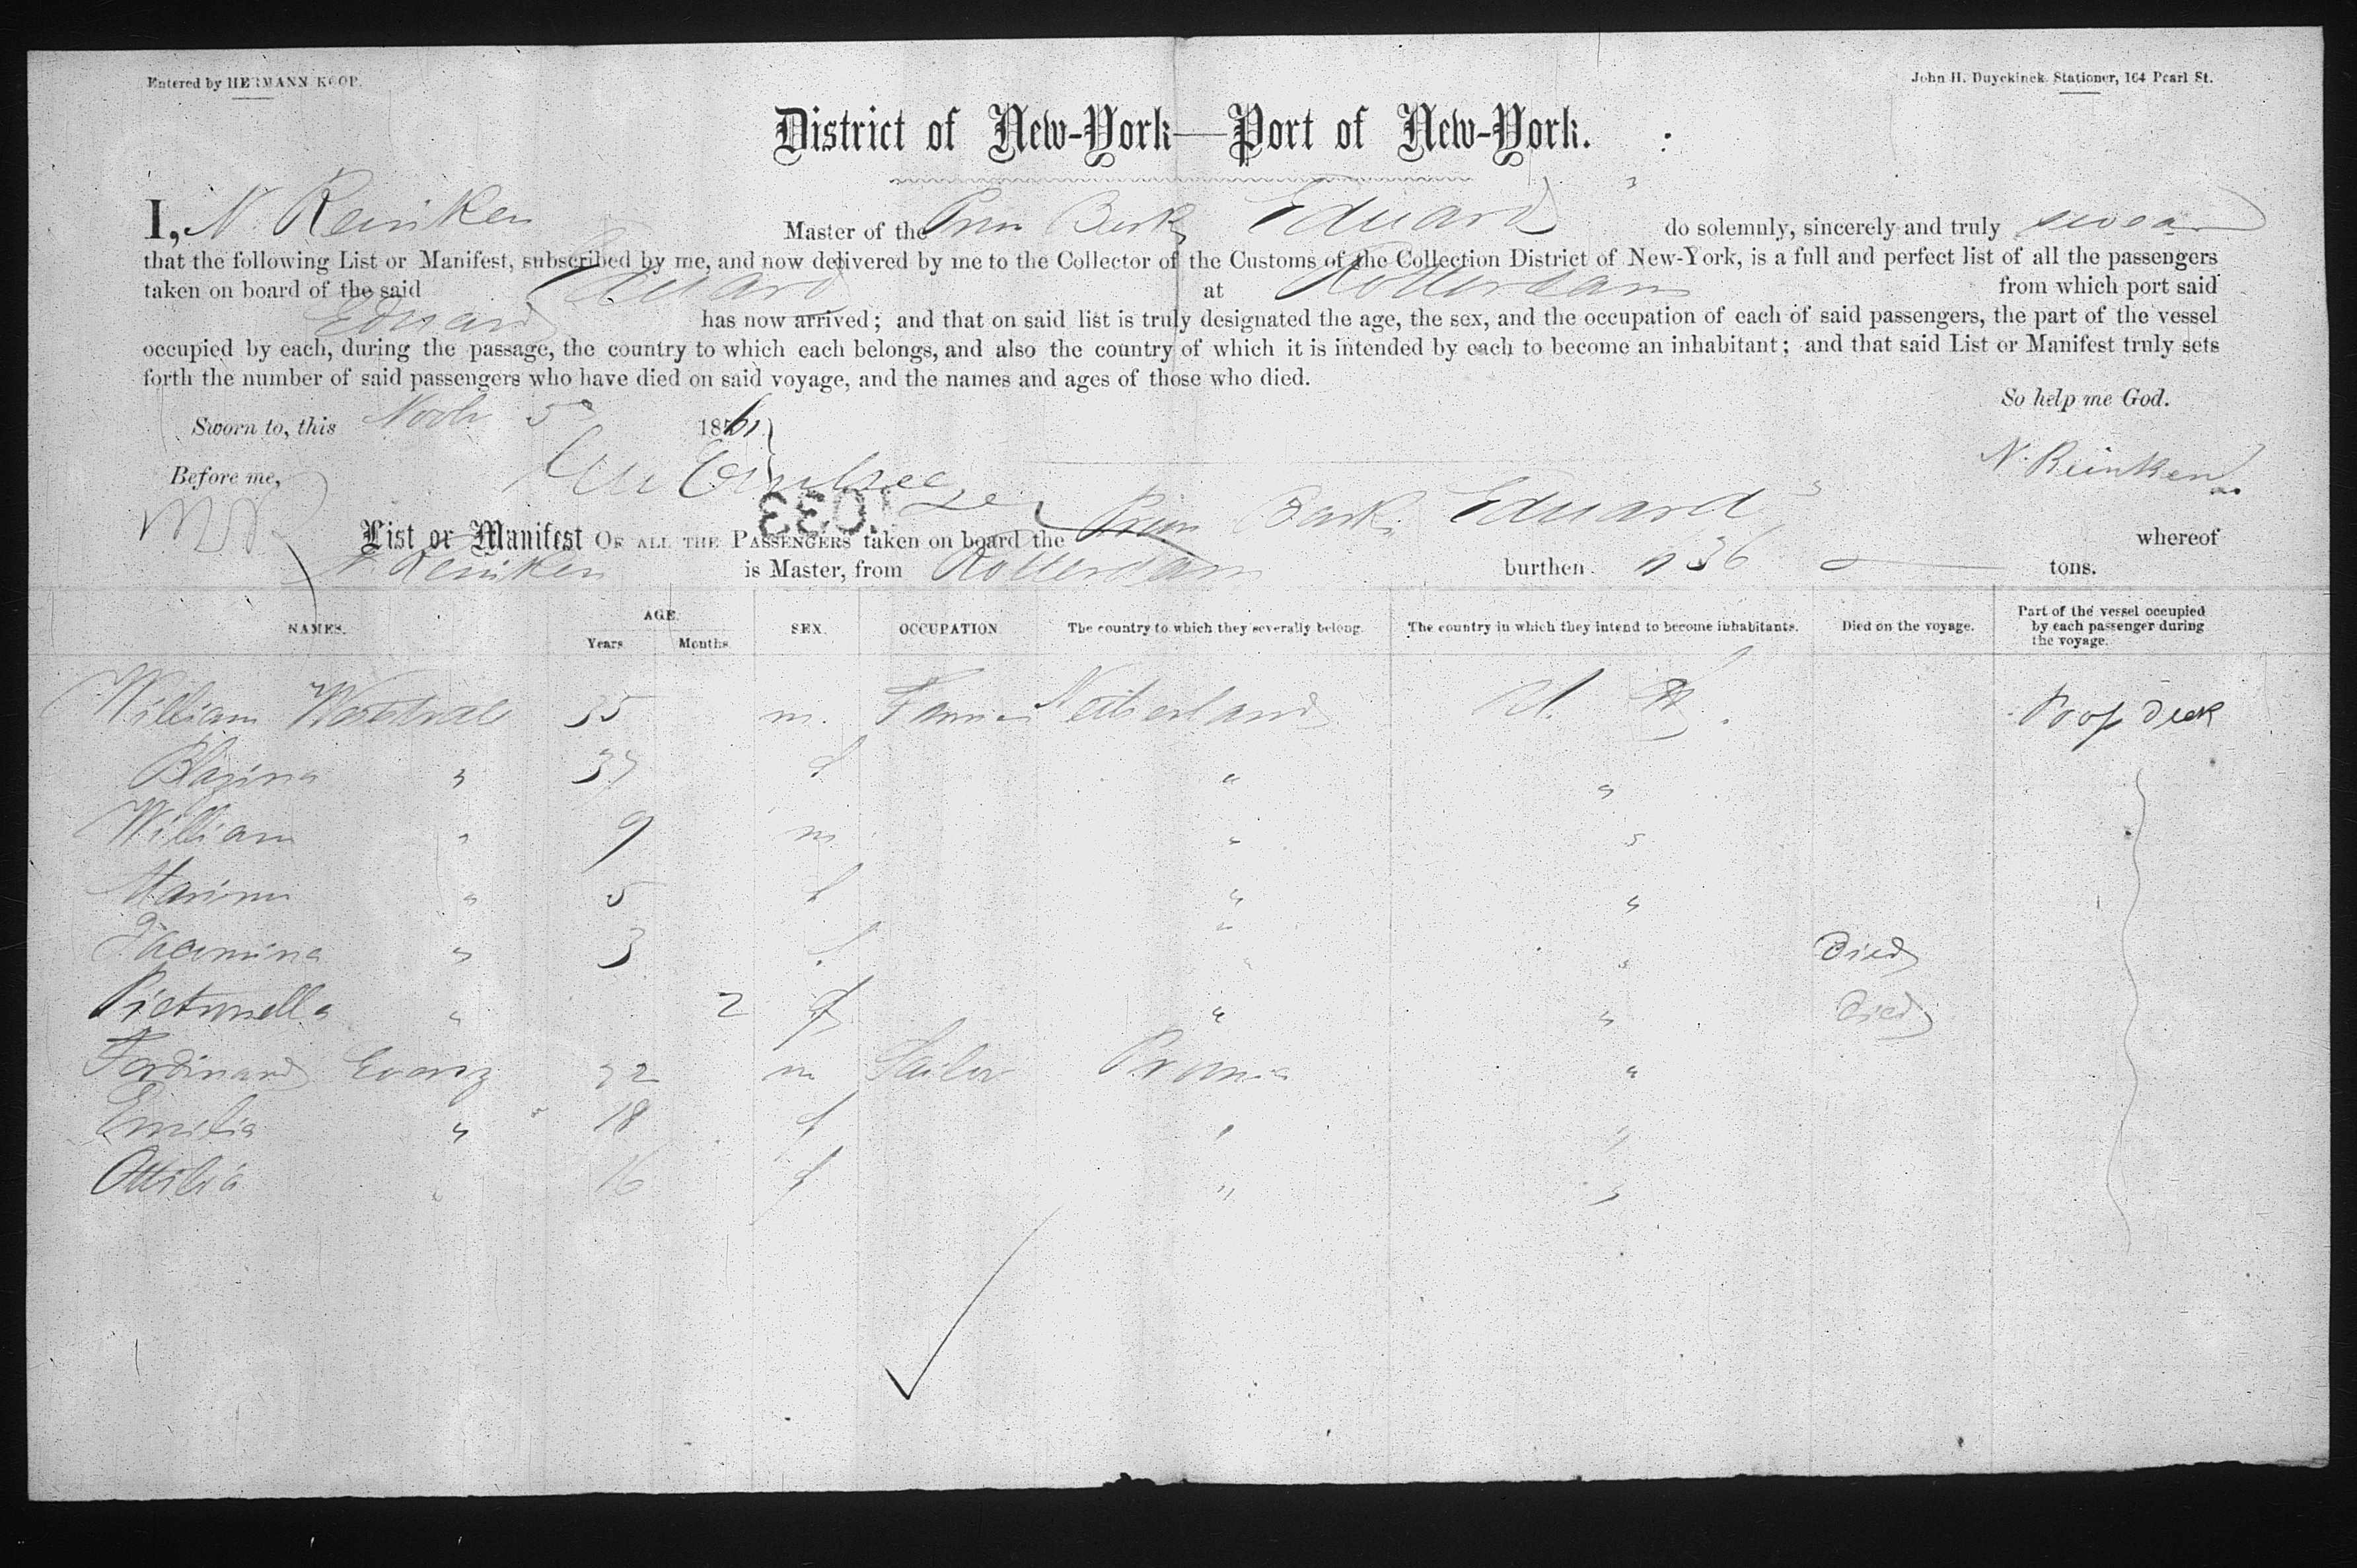 Entered by HERMANN KOOP.
John H. Duyckinck, Stationer, 164 Pearl St.
District of New-York—Port of New-York.
I, N. Reinken Master of the Prus Bark Eduard do solemnly, sincerely and truly swear
that the following List or Manifest, subscribed by me, and now delivered by me to the Collector of the Customs of the Collection District of New-York, is a full and perfect list of all the passengers
taken on board of the said Eduard at Rotterdam from which port said
Eduard has now arrived; and that on said list is truly designated the age, the sex, and the occupation of each of said passengers, the part of the vessel
occupied by each, during the passage, the country to which each belongs, and also the country of which it is intended by each to become an inhabitant; and that said List or Manifest truly sets
forth the number of said passengers who have died on said voyage, and the names and ages of those who died.
So help me God.
Sworn to, this Novbr 5 1861
N. Reinken
Before me,
List or Manifest OF ALL THE PASSENGERS taken on board the Bark Eduard whereof
N. Reinken is Master, from Rotterdam burthen 36 tons.
NAMES. AGE. Years Months SEX. OCCUPATION The country to which they severally belong. The country in which they intend to become inhabitants. Died on the voyage. Part of the vessel occupied by each passenger during the voyage.
William 35 m. Farmer Netherland U. S. Poop Deck
" 37 f " "
William " 9 m " "
" 5 f " "
" 3 f " " Died
" 2 f " " Died
Ferdinand Evertz 32 m Sailor Prussia "
Emilia " 18 f " "
Ottilia " 16 f " "